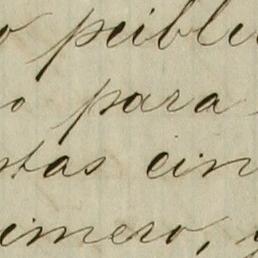 o peible
o para
stas cin
imero, y